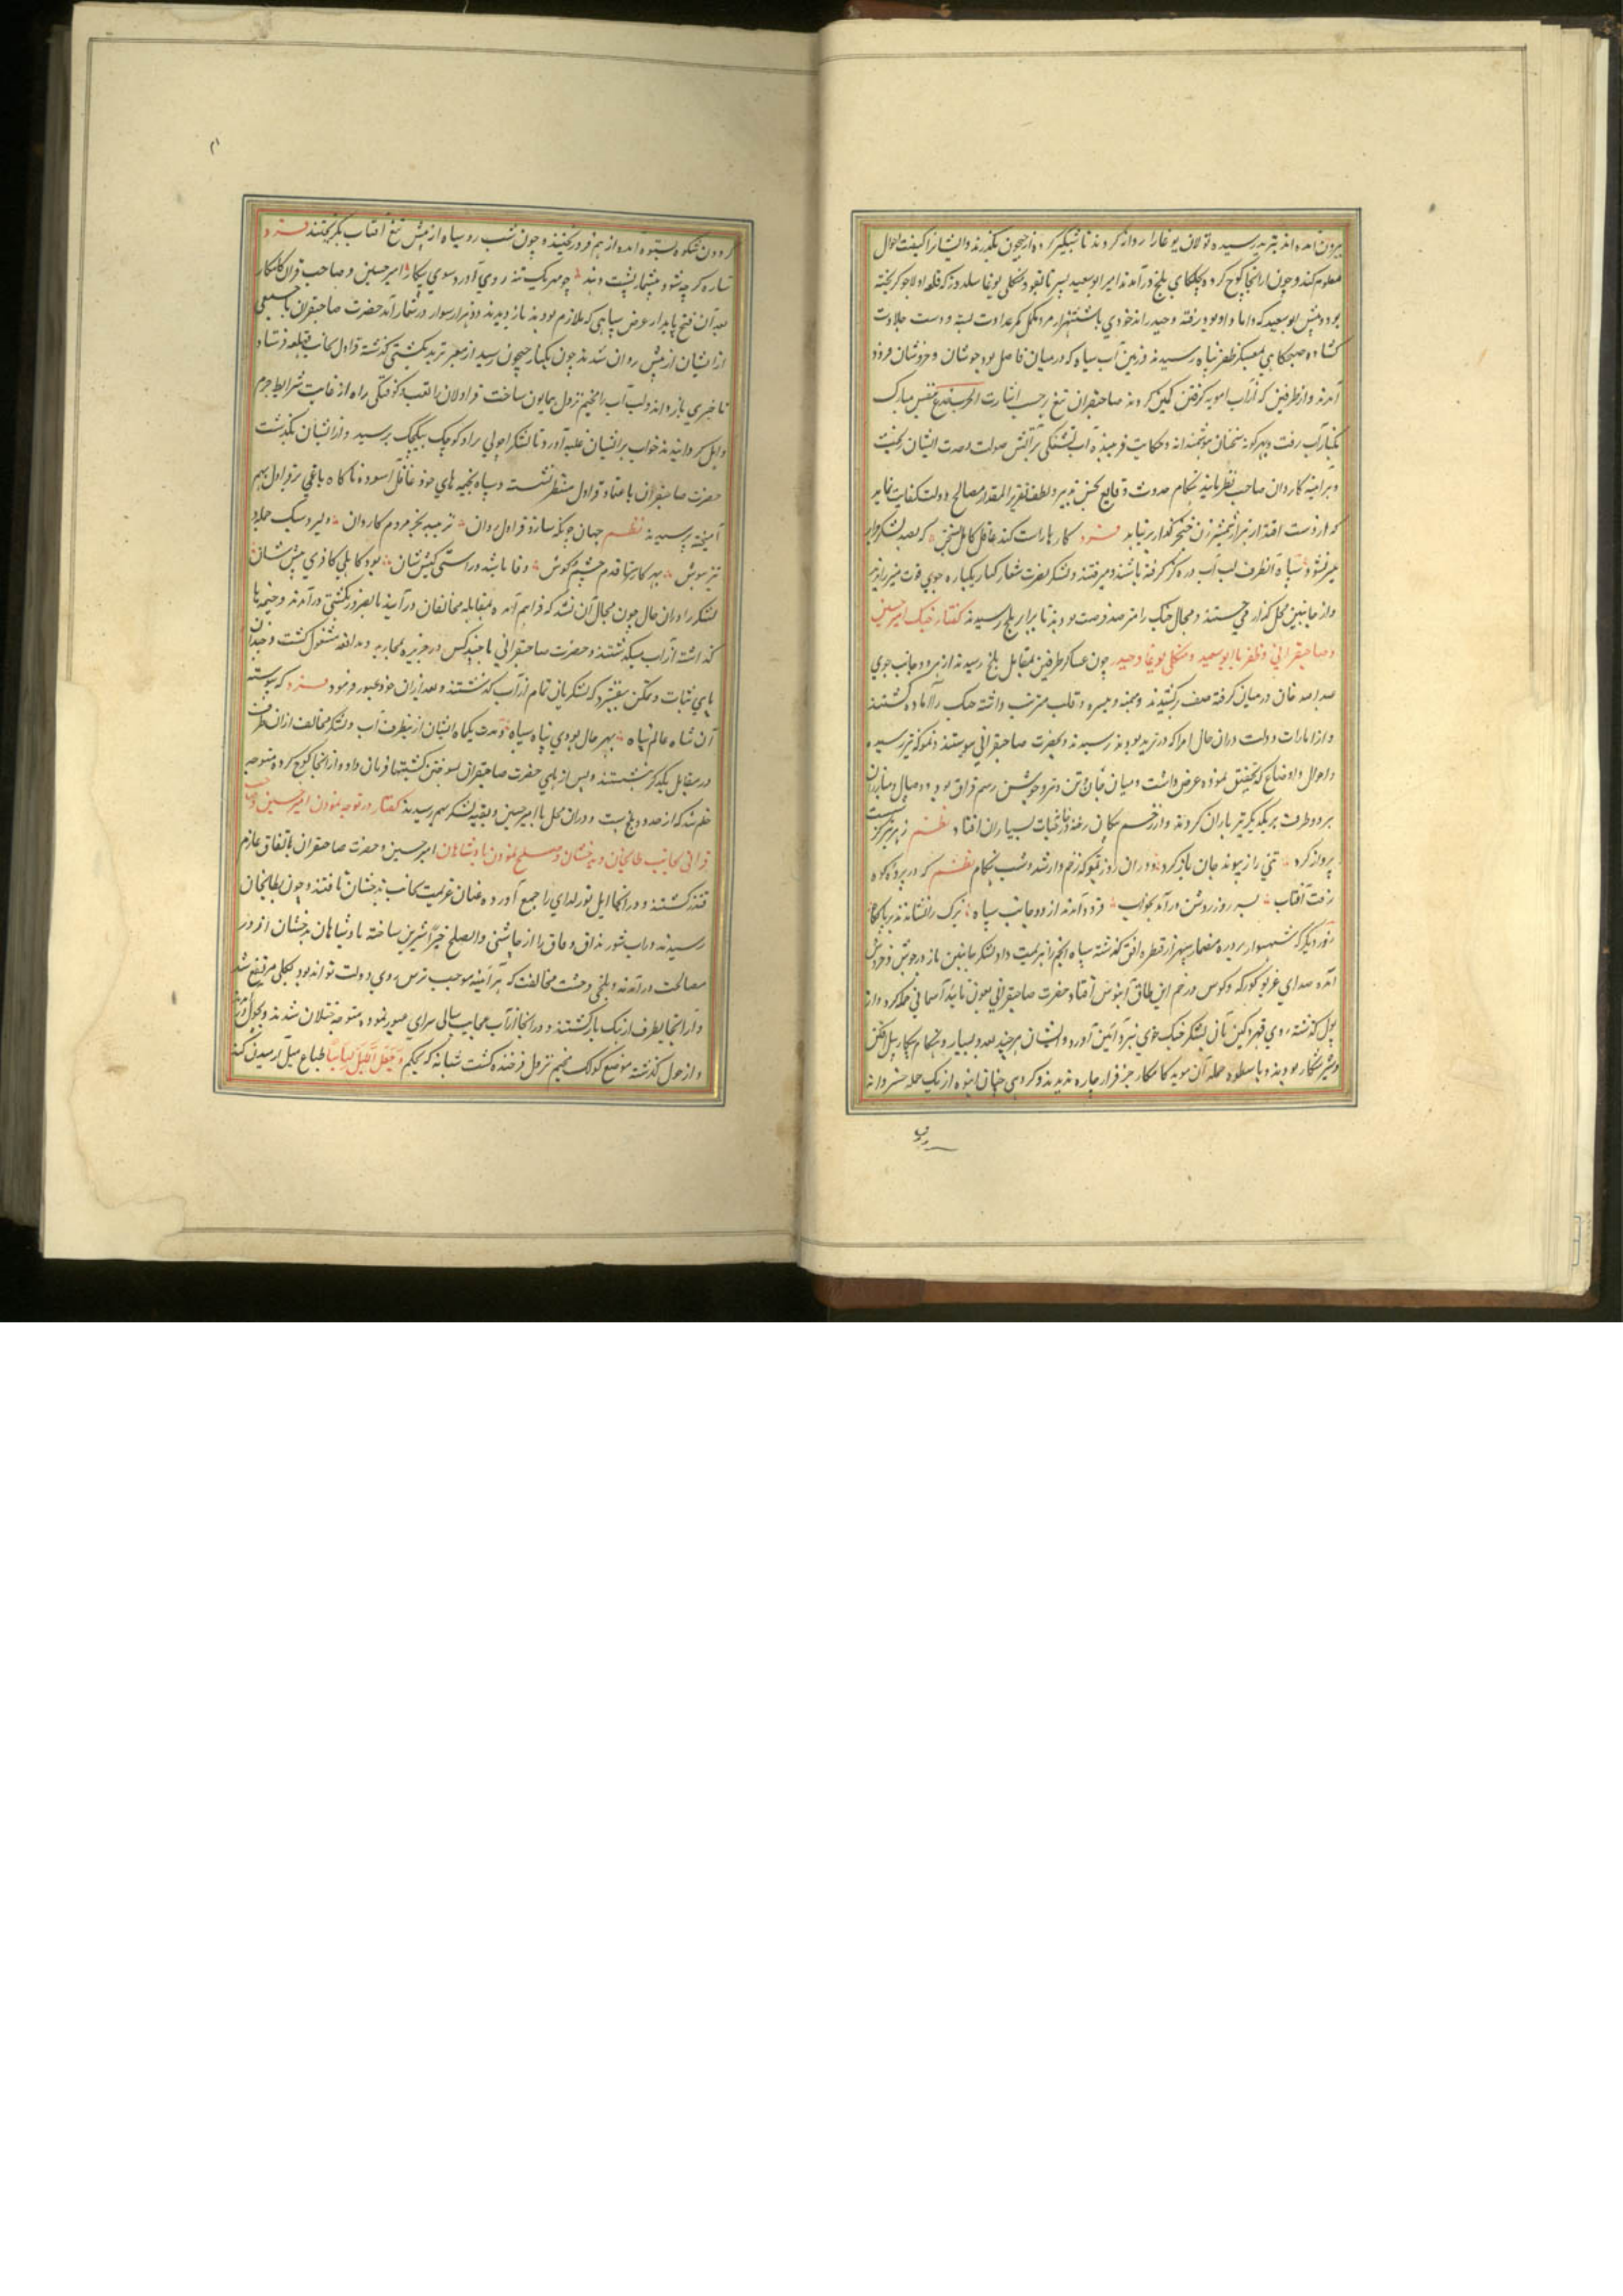 بیرون آمده اند بترمد رسیده تولان بوغا را روانه کردند تا شبگیر کرده از جیحون بگذرند و ایشانرا کیفیت احوال
معلوم کنند و چون از آنجا کوچ کرده بچلکای بلخ درآمدند امیر ابوسعید پسر تایغو و منکلی بوغا سلدوز که قلعه اولاجو گریخته
بود و پیش ابوسعید که داماد او بود رفته و حیدر اندخودی با شش هزار مرد مکمل کمر عداوت بسته و دست جلادت
گشاده صبحگاهی بمعسکر ظفر پناه رسیدند و زمین آب سیاه که در میان فاصل بود جوشان و خروشان فرود
آمدند و از طرفین گذر آب امویه گرفتن کمین کردند صاحبقران تیغ زحسب اشارت الحرب خدعة بنفس مبارک
بکنار آب رفت و بهر گونه سخنان هوشمندانه و حکایت فریبنده آب تشنگی بر آتش صولت و حدت ایشان ریخت
و هر آینه کاردان صاحب نظر باید هنگام حدوث وقایع بحسن تدبیر و لطف تقریر المقدار مصالح دولت کفایت نماید
که از دست اقتدار هزار شمشیرزن خنجر گذار برنیاید فرد کارها راست کند عاقل کامل بسخن که بصد لشکر جرار
میسر نشود سپاه آنطرف لب آب دره گز گرفته باشند و میرفتند و لشکر نصرت شعار کنار یکباره جوی فوت میراندند
و از جانبین محل گذار می جستند و مجال جنگ را مترصد فرصت بودند تا برابر بلخ رسیدند گفتار جنگ امیر حسین
و صاحبقرانی و ظفر با ابوسعید و منکلی بوغا و حیدر چون عساکر طرفین بمقابل بلخ رسیدند از هر دو جانب جوی
صد بصد خان در میان گرفته صف برکشیدند و میمنه و میسره و قلب مرتب داشته جنگ را آماده گشتند
و از امارات دولت دران حال امرا که در ترمد بودند رسیدند و بحضرت صاحبقرانی پیوستند و تموکه نیز رسیده
و احوال و اوضاع که تحقیق نموده عرض داشت و میان جان و تن و سر و جوشن رسم فراق بود و وصال و مبارزان
هر دو طرف بر یکدیگر تیر باران کردند و از زخم پیکان رخنه در خانه حیات بسیاران افتاد نظم ز هر تیر کز شست
پرواز کرد تنی را ز پیوند جان باز کرد و دران روز تموکه زخم دار شد و شب هنگام نظم که در پرده کوه
رفت آفتاب سر روز روشن درآمد بخواب فرود آمدند از دو جانب سپاه یزک را نشاندند بر پایگاه
روز دیگر که شهسوار پرده مضمار سپهر از قنطره افق گذشته سپاه انجم را هزیمت داد لشکر جانبین باز در جوش و خروش
آمده صدای غریو کورکه و کوس در خم این طاق آبنوس افتاد حضرت صاحبقرانی بعون تایید آسمانی حمله کرد و از
پول گذشته روی قهر و کین بآن لشکر جنگ جوی نبرد آیین آورد و ایشان هر چند بعدد بسیار و هنگام پیکار پیل افکن
و شیر شکار بودند و با سطوت حمله آن موید کامکار جز فرار چاره ندیدند و گروهی چنان انبوه از یک حمله خسروانه
گردون شکوه بستوه آمده از هم فرو ریختند و چون شب رو سیاه از پیش تیغ آفتاب بگریختند فرد
ستاره گرچه شود بیشمار پشت دهند چو مهر یک تنه روی آورد سوی پیکار امیر حسین و صاحب قران کامکار
بعد آن فتح پایدار عرض سپاهی که ملازم بودند باز دیدند دو هزار سوار در شمار آمد حضرت صاحبقران با جمعی
از ایشان از پیش روان شدند چون بکنار جیحون رسید از معبر ترمد بکشتی گذشته قراول بجانب قهلغه فرستاد
تا خبری باز دانند و لب آب را مخیم نزول همایون ساخت قراولان را تعب و کوفتگی راه از غایت شرایط حزم
ذاهل گردانیدند خواب برایشان غلبه آورد تا لشکر اجونی برادر کوچک بیکچک برسید و از ایشان بگذشت
حضرت صاحبقران باعتماد قراول منتظر نشسته و سپاه بخیمه های خود غافل آسوده ناگاه یاغی برقراول بهم
آمیخته برسیدند نظم جهان جو که سازد قراول روان نزیبد بجز مردم کاردان دلیر و سبک جلد و
تیز هوش بهر کار تنها قدم چشم و گوش وفا باشد و راستی کیش شان بود کاهلی کافری پیش شان
لشکر را دران حال چون مجال آن نشد که فراهم آمده بمقابله مخالفان درآیند بالضرور بکشتی درآمدند و خیمه ها
گذاشته از آب میگذشتند و حضرت صاحبقرانی با چند کس در جزیره بمحاربه و مدافعه مشغول گشت و چندان
پای ثبات و تمکن بیفشرد که لشکریانی تمام از آب گذشتند و بعد ازان خود عبور فرمود فرد که پیوسته
آن شاه عالم پناه بهر حال بودی پناه سپاه و مدت یکماه ایشان از اینطرف آب و لشکر مخالف از آنطرف
در مقابل یکدیگر نشستند و پس از یکماهی حضرت صاحبقران بسوختن کشتیها فرمان داد و از آنجا کوچ کرده متوجه
خلم شد که از حدود بلخ است و دران محل با امیر حسین و بقیه لشکر بهم رسیدند گفتار در توجه نمودن امیر حسین و صاحب
قرانی بجانب طالیخان و بدخشان و صلح نمودن با پادشاهان امیر حسین و حضرت صاحبقران باتفاق عازم
قندز گشتند و در آنجا ایل بورلدای را جمع آورده عنان عزیمت بجانب بدخشان تافتند و چون بطالیخان
رسیدند و راب شور مذاق وفاق را از چاشنی والصلح خیر شیرین ساخته با پادشاهان بدخشان از در
مصالحت درآمدند و تلخی وحشت مخالفت که هر آینه موجب ترس روی دولت تواند بود بکلی مرتفع شد
و از آنجا بطرف ارنک بازگشتند و در آنجا از آب عجایب بسالی سرای عبور نموده متوجه ختلان شدند و بچول
و از چول گذشته موضع کولک مخیم نزول فرخنده گشت شبانه که بحکم وجعل اللیل لباسا طباع میل آرمیدن کند